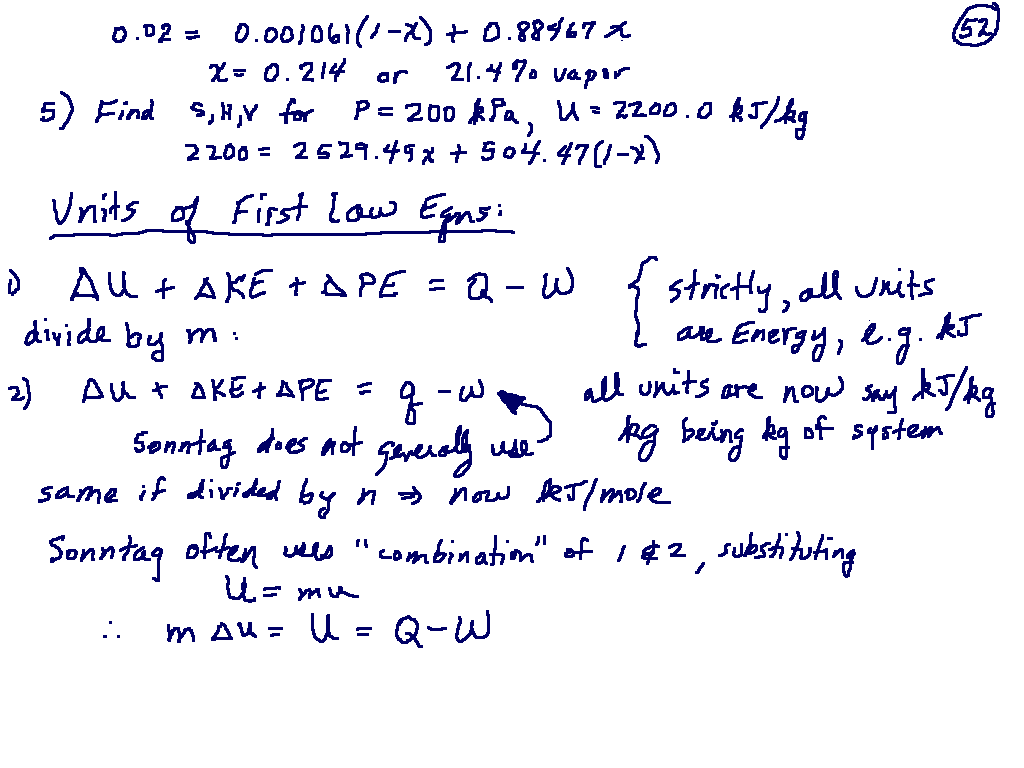 52
0.02 = 0.001061(1-x) + 0.88467 x
x = 0.214 or 21.4% vapor
5) Find S,H,V for P = 200 kPa, U = 2200.0 kJ/kg
2200 = 2529.49x + 504.47(1-x)
Units of First Law Eqns:
1) ΔU + ΔKE + ΔPE = Q - W { strictly, all units
divide by m : are Energy, e.g. kJ
2) Δu + ΔKE + ΔPE = q - w all units are now say kJ/kg
Sonntag does not generally use kg being kg of system
same if divided by n ⇒ now kJ/mole
Sonntag often uses "combination" of 1 & 2, substituting
U = mu
∴ m Δu = U = Q - W